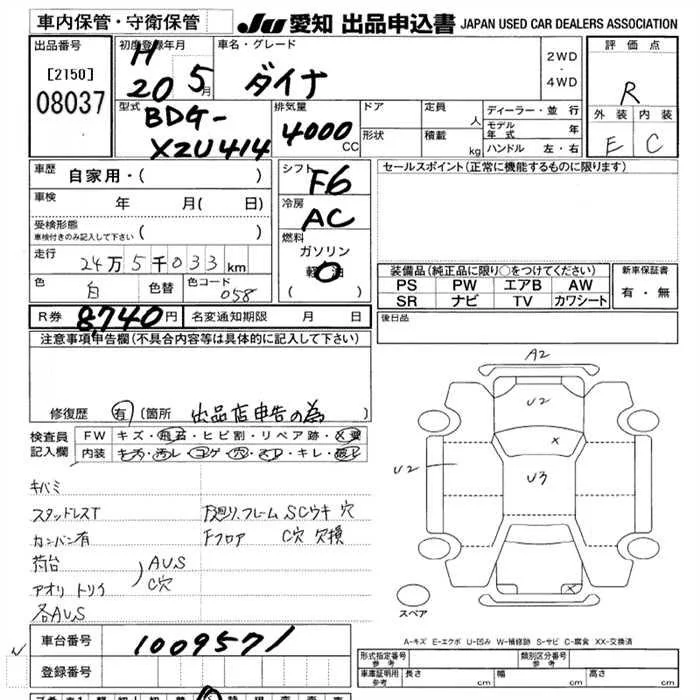 車内保管・守衛保管 JU 愛知 出品申込書 JAPAN USED CAR DEALERS ASSOCIATION
出品番号 初度登録年月 車名・グレード 評価点
[2150] H 20 5月 ダイナ 2WD・4WD R
08037
型式 排気量 ドア 定員 人 ディーラー・並行 外装 内装
BDG-XZU414 4000cc 形状 積載 kg モデル年式 年 E C
ハンドル 左・右
車歴 自家用・( ) シフト F6 セールスポイント(正常に機能するものに限ります)
車検 年 月( 日) 冷房 AC
受検形態
車検付きのみ記入して下さい ( ) 燃料 ガソリン
走行 24万5千033km 軽油
色 白 色替 色コード 058 ( )
装備品(純正品に限り○をつけてください) 新車保証書
PS PW エアB AW 有・無
SR ナビ TV カワシート
R券 8,740円 名変通知期限 月 日 後日品
注意事項申告欄(不具合内容等は具体的に記入して下さい)
修復歴 有 (箇所 出品店申告の為)
検査員記入欄 FW キズ・飛石・ヒビ割・リペア跡・X要
内装 キズ・汚レ・コゲ・穴・スレ・キレ・破レ
キバミ
スタッドレスT F廻り、フレーム SCウキ 穴
カンバン有 Fフロア C穴 欠損
荷台 AUS
アオリ トリイ C穴
各AUS
A2
U2
X
U2 U3
X
スペア
A-キズ E-エクボ U-凹み W-補修跡 S-サビ C-腐食 XX-交換済
車台番号 1009571
登録番号
形式指定番号 参考 類別区分番号 参考
車庫証明用 参考 長さ cm 幅 cm 高さ cm